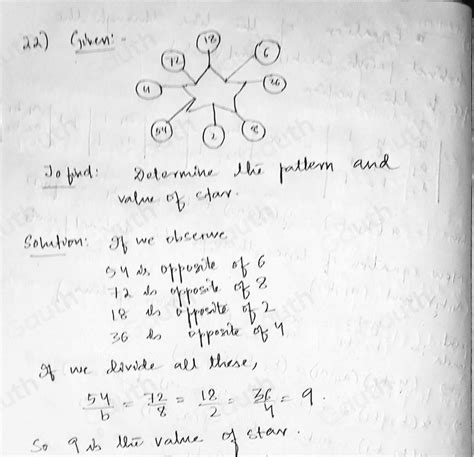 22) Given: -
18
72
6
4
36
54
2
8
To find: Determine the pattern and
value of star.
Solution: If we observe
54 is opposite of 6
72 is opposite of 8
18 is opposite of 2
36 is opposite of 4
If we divide all these,
54/6 = 72/8 = 18/2 = 36/4 = 9.
So 9 is the value of star.